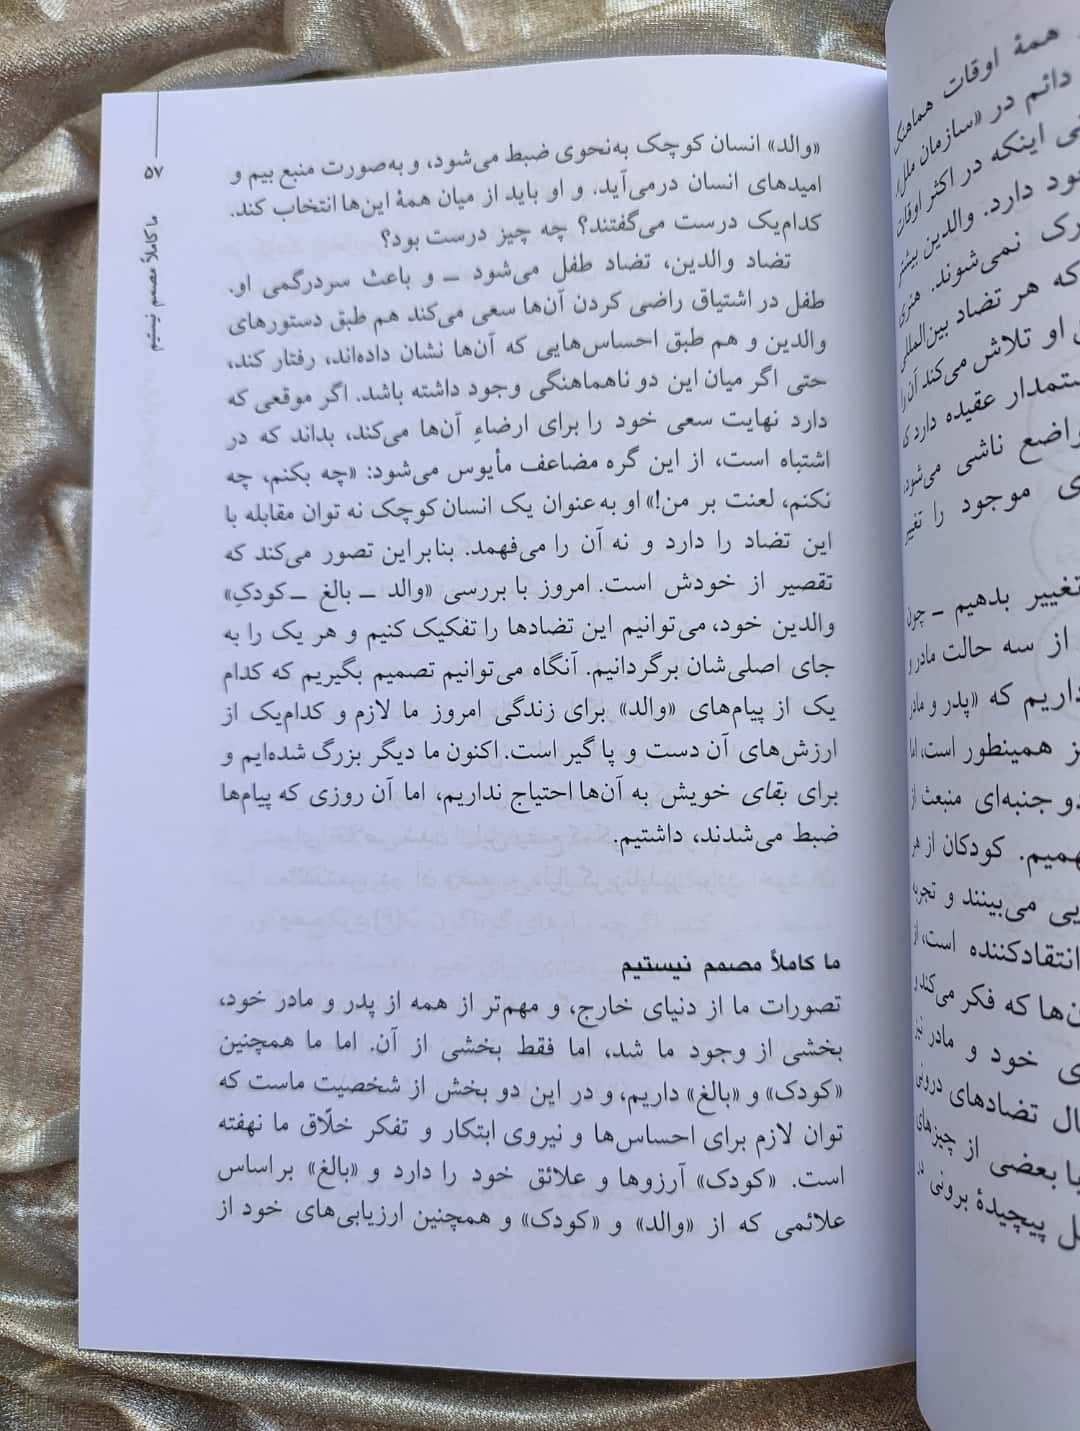 ۵۷
ما کاملاً مصمم نیستیم
«والد» انسان کوچک به‌نحوی ضبط می‌شود، و به‌صورت منبع بیم و
امیدهای انسان درمی‌آید. و او باید از میان همهٔ این‌ها انتخاب کند.
کدام‌یک درست می‌گفتند؟ چه چیز درست بود؟
تضاد والدین، تضاد طفل می‌شود ــ و باعث سردرگمی او.
طفل در اشتیاق راضی کردن آن‌ها سعی می‌کند هم طبق دستورهای
والدین و هم طبق احساس‌هایی که آن‌ها نشان داده‌اند، رفتار کند،
حتی اگر میان این دو ناهماهنگی وجود داشته باشد. اگر موقعی که
دارد نهایت سعی خود را برای ارضاءِ آن‌ها می‌کند، بداند که در
اشتباه است، از این گره مضاعف مأیوس می‌شود: «چه بکنم، چه
نکنم، لعنت بر من!» او به‌عنوان یک انسان کوچک نه توان مقابله با
این تضاد را دارد و نه آن را می‌فهمد. بنابراین تصور می‌کند که
تقصیر از خودش است. امروز با بررسی «والد ــ بالغ ــ کودکِ»
والدین خود، می‌توانیم این تضادها را تفکیک کنیم و هر یک را به
جای اصلی‌شان برگردانیم. آنگاه می‌توانیم تصمیم بگیریم که کدام
یک از پیام‌های «والد» برای زندگی امروز ما لازم و کدام‌یک از
ارزش‌های آن دست و پا گیر است. اکنون ما دیگر بزرگ شده‌ایم و
برای بقای خویش به آن‌ها احتیاج نداریم، اما آن روزی که پیام‌ها
ضبط می‌شدند، داشتیم.
ما کاملاً مصمم نیستیم
تصورات ما از دنیای خارج، و مهم‌تر از همه از پدر و مادر خود،
بخشی از وجود ما شد، اما فقط بخشی از آن. اما ما همچنین
«کودک» و «بالغ» داریم، و در این دو بخش از شخصیت ماست که
توان لازم برای احساس‌ها و نیروی ابتکار و تفکر خلّاق ما نهفته
است. «کودک» آرزوها و علائق خود را دارد و «بالغ» براساس
علائمی که از «والد» و «کودک» و همچنین ارزیابی‌های خود از
همهٔ اوقات هماهنگ
دائم در «سازمان ملل»
اینکه در اکثر اوقات
دارد. والدین بیشتر
نمی‌شوند. هنری
که هر تضاد بین‌المللی
او تلاش می‌کند آن را
عقیده دارد
ناشی می‌شود،
موجود را تغییر
تغییر بدهیم ــ چون
از سه حالت مادر و
که «پدر و مادر
همینطور است، اما
جنبه‌ای منبعث از
کودکان از هر
می‌بینند و تجربه
انتقادکننده است، از
که فکر می‌کند و
خود و مادر نیز
تضادهای درونی
بعضی از چیزهای
پیچیدهٔ برونی در